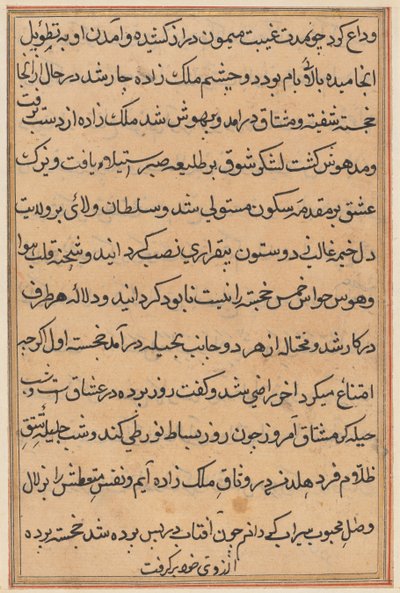 وداع کرد چو مدت غیبت میمون دراز کشیده و آمدن او به تطویل
انجامیده بالای بام بود دو چشم ملک زاده چار شد در حال از آنجا
خجسته شیفته و مشتاق درآمد و بیهوش شد ملک زاده از دست برفت
و مدهوش گشت لشکر شوق بر طلیعه صبر استیلا یافت و یزک
عشق بر مقدمه سکون مستولی شد و سلطان ولای بر ولایت
دل خیمه غالبی زد و ستون بیقراری نصب کردانید و شحنه قلب هوا
و هوس حواس خمس خجسته را نیست نابود کردانید و دلاله هر طرف
در کار شد و محتاله از هر دو جانب بحیله درآمد خجسته اول اکرچه
امتناع میکرد اخر راضی شد و کفت روز پرده در عشاق است و شب
حیله کر مشتاق امروز چون روز بساط نور طی کند و شب
ظلام فرو هلد من در وفاق ملک زاده آیم و نفس متعطش را بزلال
وصل محبوب سیراب کردانم چون آفتاب در پس پرده شد خجسته پرده
از روی خود بر گرفت